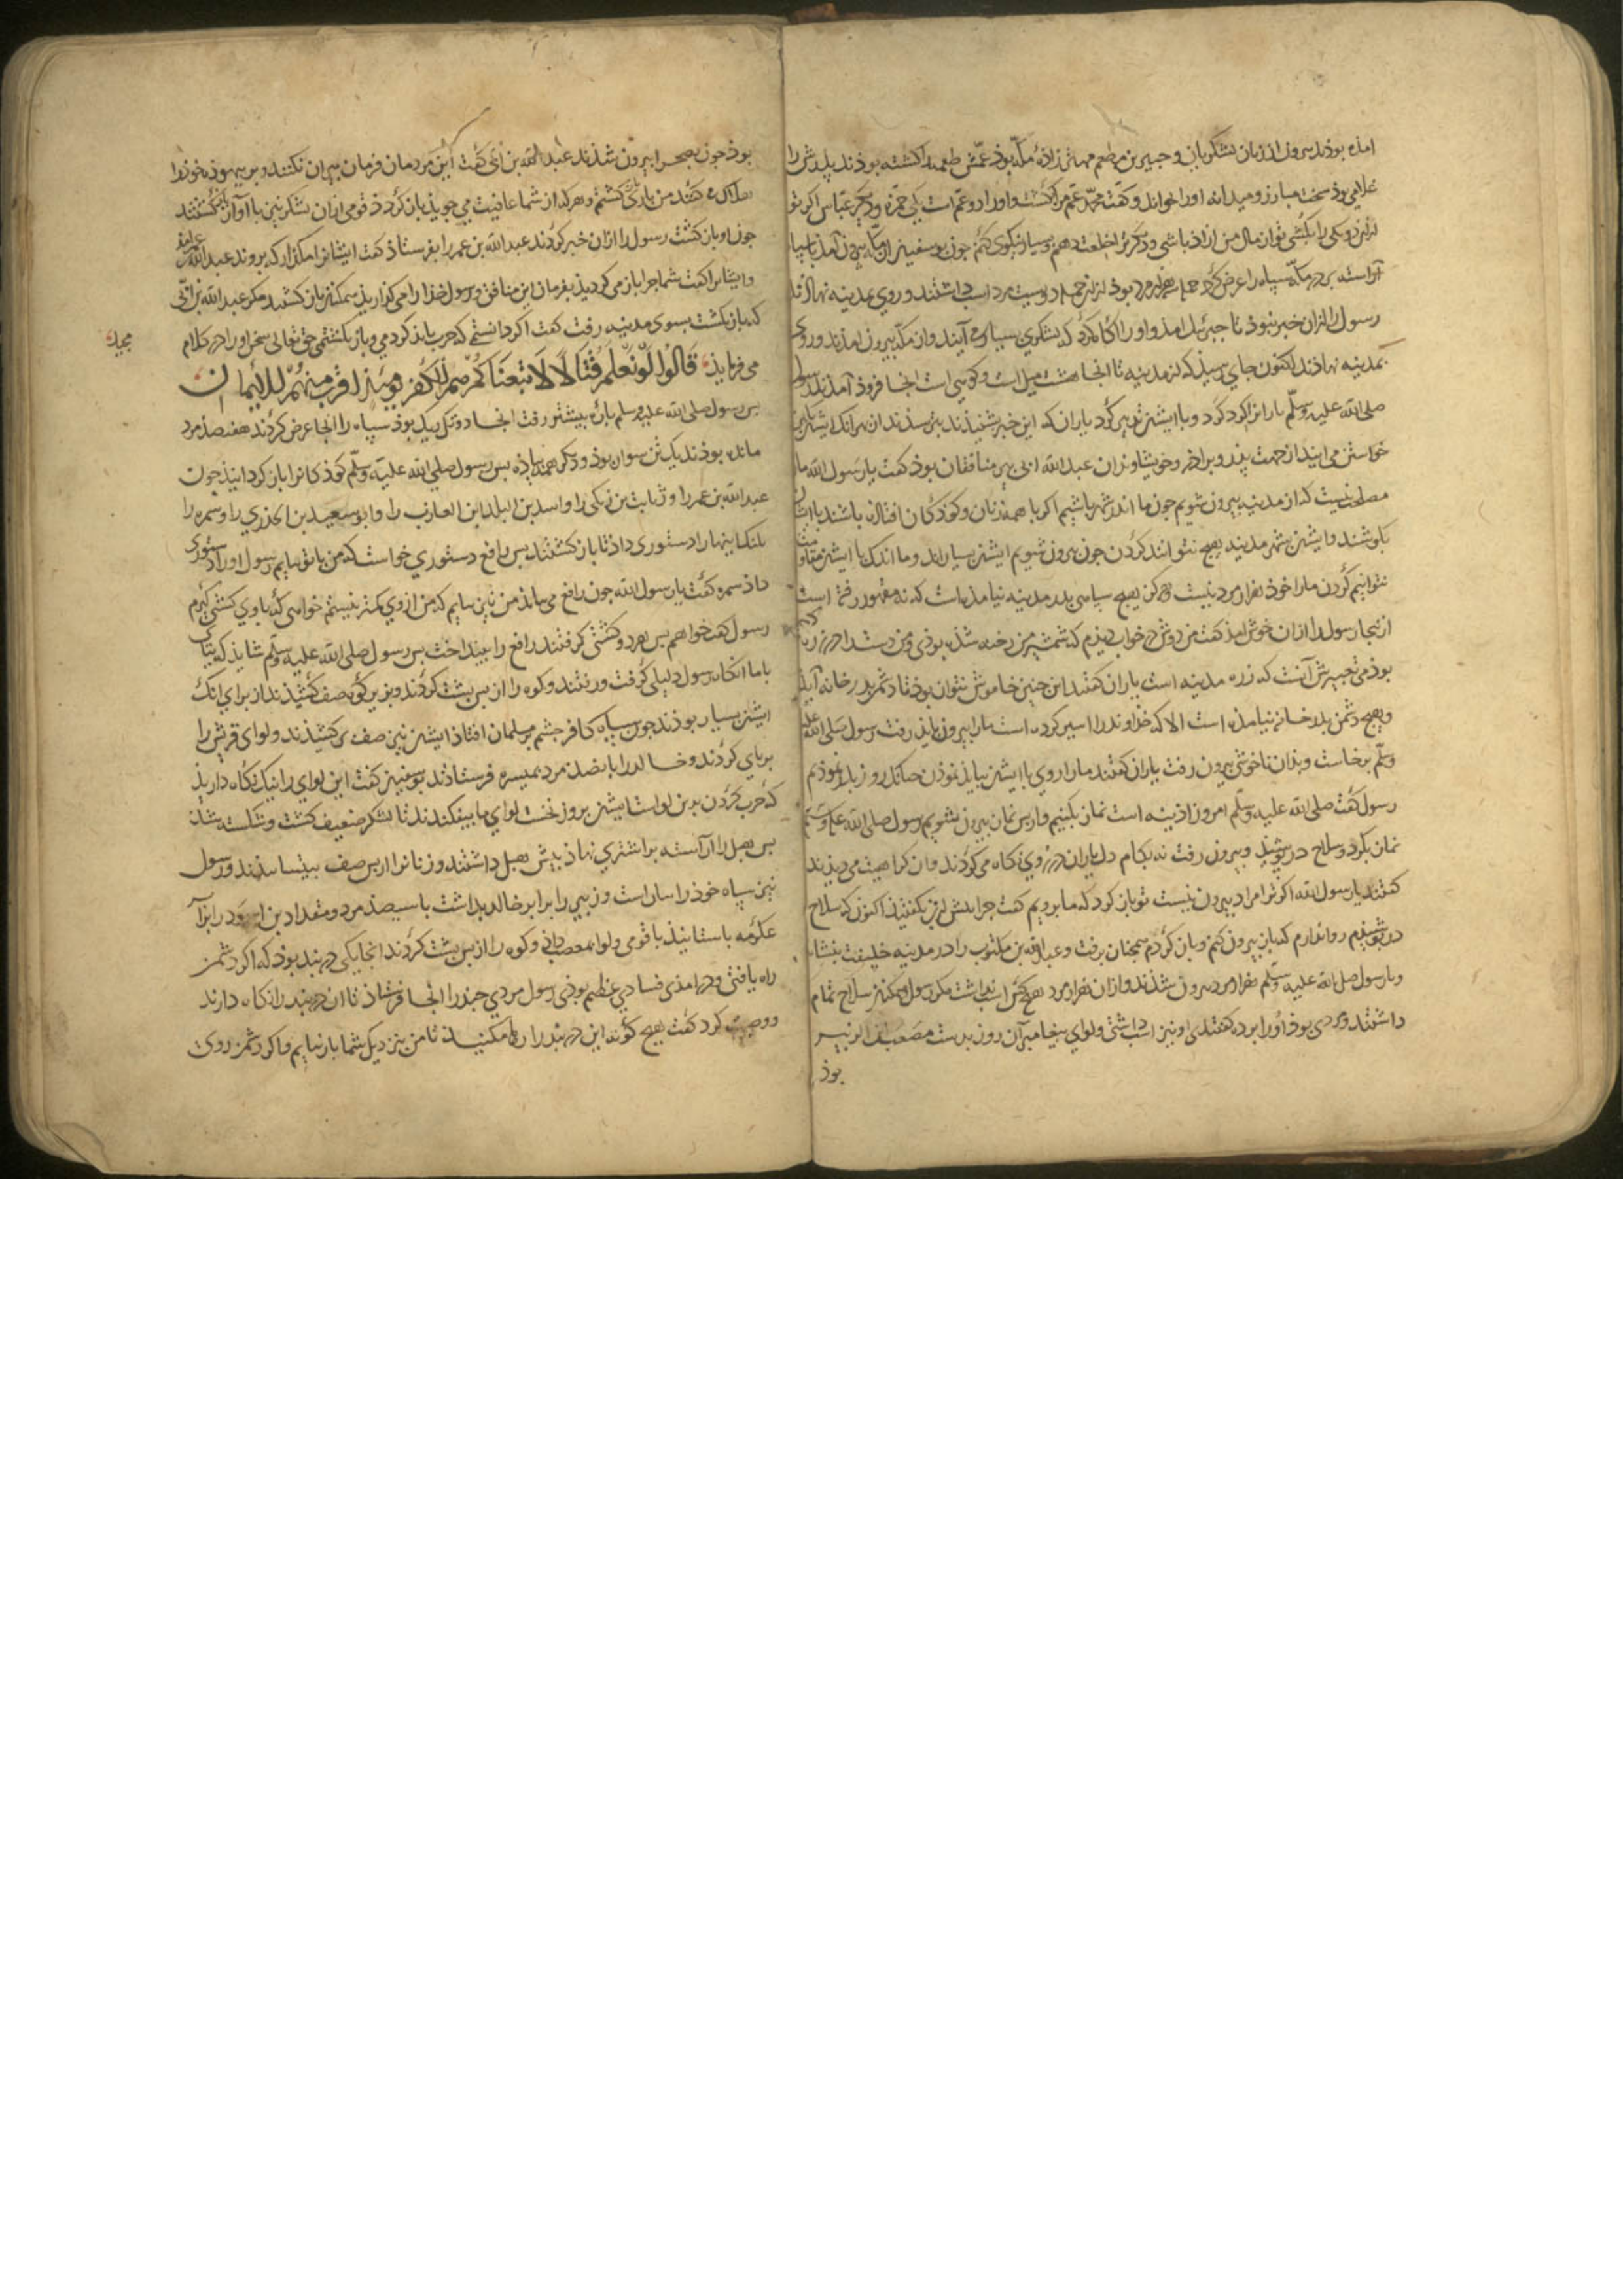 امذه بوذند بیرون از زنان لشکریان و جبیر بن مطعم مهتر زاده مکه بوذ عمش طعمه را کشته بوذند پلرش را
غلامی بوذ سخت مبارز و میدانه اورا بخواند و کفت محمد عم مرا کشت و اورا دو عم است یکی حمزه و دیکر عباس اکر تو
ازین دو یکی را بکشی توان مال من ازاذ باشی و دیکر ترا خلعت دهم و بسیار نیکوی کنم جون بوسفین از مکه بیرون آمذ با سپاه
آراسته بر در مکه سپاه را عرض کرد سه هزار مرد بوذ از این جمله دویست مرد اسب داشتند و روی بمدینه نهاذند
رسول را ازان خبر نبوذ تا جبرئیل امذ و اورا آکاه کرد که لشکری بسیار می آیند و از مکه بیرون امذند و روی
بمدینه نهاذند اکنون جای رسیذ که از مدینه تا انجا هشت میل است و کوهی است انجا فروذ آمذند رسول
صلی الله علیه وسلم یارانرا کرد کرد و با ایشان تدبیر کرد یاران که این خبر بشنیذند بترسیذند ان بهر انک ایشان بکین
خواستن می ایند از جهت پذر و براذر و خویشاوندان عبد الله ابی مهتر منافقان بوذ کفت یا رسول الله مارا
مصلحت نیست که از مدینه بیرون شویم جون ما اندر شهر باشیم اکر با همه زنان و کوذکان افتاذه باشند با ایشان
بکوشند و ایشان بشهر مدینه هیچ نتوانند کردن جون بیرون شویم ایشان بسیارند و ما اندک با ایشان مقاومت
نتوانیم کردن مارا خوذ هزار مرد نیست و هرکز هیچ سپاهی بدر مدینه نیامذه است که نه مقهور رفته است
ازینجا رسول را ازان خوش امذ کفت من دوش در خواب دیذم که شمشیر من رخنه شذه بوذی و من دست را در زره کرده
بوذمی تعبیرش آنست که زره مدینه است یاران کفتند این جنین خاموش نتوان بوذ تا دشمن بدر خانه آید
و هیچ دشمن بدر خانه نیامذه است الا که خذاوند را اسیر کرده است مارا بیرون بایذ رفت رسول صلی الله علیه
وسلم برخاست و بذان ناخوشی بیرون رفت یاران کفتند مارا روی با ایشان ببایذ نموذن جنانک روز بدر نموذیم
رسول کفت صلی الله علیه وسلم امروز اذینه است نماز بکنیم و از پس نماز بیرون شویم رسول صلی الله علیه وسلم
نماز بکرد و سلاح در پوشیذ و بیرون رفت نه بکام دل یاران در روی نکاه می کردند و ان کراهیت می دیذند
کفتند یا رسول الله اکر ترا مراد بیرون نیست تو باز کرد که ما برویم کفت جرا بیش ازین نکفتیذ اکنون که سلاح
در پوشیذم روا ندارم که باز بیرون کنم و باز کردم همجنان برفت و عبد الله بن مکتوب را در مدینه خلیفت بنشاند
و با رسول صلی الله علیه وسلم هزار مرد بیرون شذند و ازان هزار مرد هیچ کس اسب نداشت مکر رسول و همکنان سلاح تمام
داشتند و مردی بوذ اورا برده کفتندی او نیز اسب داشتی و لوای پیغامبر آن روز بدست مصعب بن الزبیر
بوذ
بوذ جون بصحرا بیرون شذند عبد الله بن ابی کفت این مردمان فرمان پیران نکنند و بر بیهوذه خوذرا
هلاک می کنند من باری کشتم و هر که از شما عافیت می جویذ باز کردذ قومی ازان لشکر نیز با او باز کشتند
جون او باز کشت رسول را ازان خبر کردند عبد الله بن عمر را بفرستاذ کفت ایشانرا مکذار که بروند عبد الله عمر بیامذ
و ایشانرا کفت شما جرا باز می کردیذ بفرمان این منافق و رسول خذارا می کذاریذ همکنان باز کشتند مکر عبد الله بن ابی
که باز نکشت بسوی مدینه رفت کفت اکر دانستمی که حرب بایذ کرد می و باز نکشتمی حق تعالی سخن اورا در کلام
مجید
می فرمایذ قَالُوا لَوْ نَعْلَمُ قِتَالًا لَاتَّبَعْنَاكُمْ هُمْ لِلْكُفْرِ يَوْمَئِذٍ أَقْرَبُ مِنْهُمْ لِلْإِيمَانِ
بس رسول صلی الله علیه وسلم باره بیشتر رفت انجا دو تل بیک بوذ سپاه را انجا عرض کردند هفتصذ مرد
مانده بوذند یک تن سوار بوذ و دیکر همه پیاذه بس رسول صلی الله علیه وسلم کوذکانرا باز کردانیذ جون
عبد الله بن عمر را و ثابت بن زیکی را و اسد بن البلد ابن العازب را و ابو سعید بن الخدری را و سمره را
بلنک اینهارا دستوری داذ تا باز کشتند بس رافع دستوری خواست که من با تو بیایم رسول اورا دستوری
داذ سمره کفت یا رسول الله جون رافع می بیایذ من نیز بیایم که من از وی کمتر نیستم خواهی که با وی کشتی کیرم
رسول کفت خواهم بس هر دو کشتی کرفتند رافع را بینداخت بس رسول صلی الله علیه وسلم شایذ که بیای
با ما انکاه رسول دلیلی کرفت و رفتند و کوه را از بس پشت کردند و بزیر کوه صف کشیذند از برای انک
ایشان بسیار بوذند جون سپاه کافر جشم بر مسلمان افتاذ ایشان نیز صف بر کشیذند و لوای قریش را
بر پای کردند و خالد را با بانصذ مرد بمیسره فرستاذند بوسفین کفت این لوای را نیک نکاه داریذ
که حرب کردن بدین لواست ایشان بروز نخست لوای ما بیفکندند تا لشکر ضعیف کشت و شکسته شذ
بس هبل را آراسته بر اشتری نهاذ بیش هبل داشتند و زنانرا از بس صف بیستانیذند و رسول
نیز سپاه خوذ راست راست و زبیر را برابر خالد بداشت با سیصذ مرد و مقداد بن اسود را برابر
عکرمه باستانیذ با قومی و لوا بمصعب دانی و کوه را از بس پشت کردند انجا یکی در بند بوذ که اکر دشمن
راه یافتی و در امذی فسادی عظیم بوذی رسول مردی جند را انجا فرستاذ تا ان در بند را نکاه دارند
و وصیت کرد کفت هیچ کونه این در بند را رها مکنیذ تا من بنزدیک شما باز نیایم و اکر دشمن روی